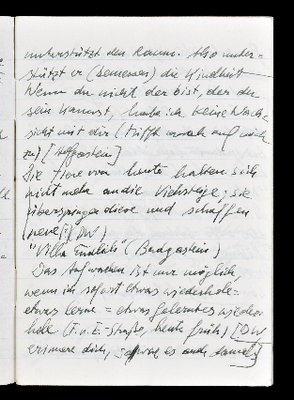 unterstützt den Raum. Also unter-
stützt er (Demenes) die Kindheit
Wenn du nicht der bist, der du
sein kannst, habe ich keine Nach-
sicht mit dir (trifft auch auf mich
zu) [Hofgastein]
Die Tiere von heute halten sich
nicht mehr an die Viehsteige; sie
überspringen diese und schaffen
neue (DW)
"Villa Fröhlich" (Badgastein)
Das Aufwachen ist nur möglich
wenn ich sofort etwas wiederhole =
etwas lerne = etwas Gelerntes wieder-
hole (F.v.E-Straße, heute früh) [DW
erinnere dich, es auch damals]